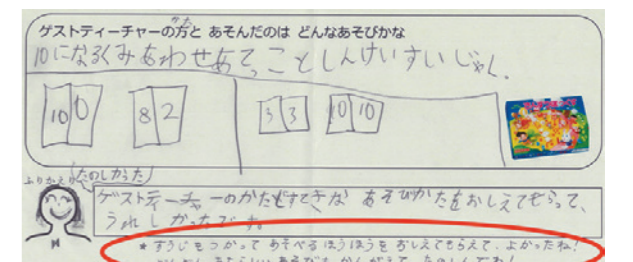 ゲストティーチャーの方と あそんだのは どんなあそびかな
かた
10になるくみあわせあてっことしんけいすいじゃく。
10 0 8 2 3 3 10 10
ふりかえり
たのしかった
ゲストティーチャーのかたとすてきな あそびかたをおしえてもらって、
うれしかったです。
＊すうじをつかって あそべるほうほうを おしえてもらえて、よかったね！
あそびも かんがえて たのしんでね！